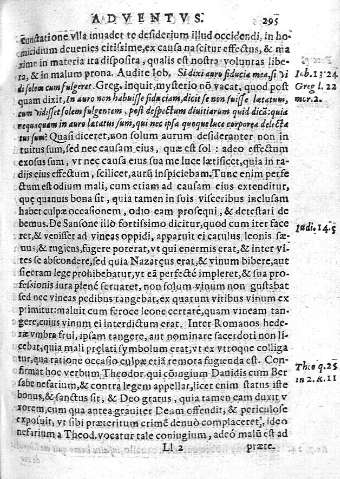 ADVENTVS. 295
cunctatione vlla inuadet te desiderium illud occidendi, in ho-
micidium deuenies citissime, ex causa nascitur effectus, & ma
xime in materia ita disposita, qualis est nostra voluntas libe-
ra, & in malum prona. Audite Iob, Si dixi auro fiducia mea, si vi
di solem cum fulgeret. Greg. inquit, mysterio nō vacat, quod post
quam dixit, In auro non habuisse fiduciam, dicit se non fuisse lætatum,
cum vidisset solem fulgentem. post despectum diuitiarum quid dicā: quia
nequaquam in auro lætatus sum, qui nec ipsa quoque luce corporea delecta
tus sum? Quasi diceret, non solum aurum desideranter non in
tuitus sum, sed nec causam eius, quæ est sol: adeo effectum
exosus sum, vt nec causa eius sua me luce lætificet, quia in ra-
dijs eius effectum, scilicet, aurū inspiciebam. Tunc enim perfe
ctum est odium mali, cum etiam ad causam eius extenditur,
quæ quamuis bona sit, quia tamen in suis visceribus inclusam
habet culpæ occasionem, odio eam prosequi, & detestari de
bemus. De Sansone illo fortissimo dicitur, quod cum iter face
ret, & venisset ad vineas oppidi, apparuit ei catulus leonis sæ-
uus, & rugiens, fugere poterat, vt qui enermis erat, & inter vi-
tes se abscondere, sed quia Nazaręus erat, & vinum bibere, aut
siceram lege prohibebatur, vt eā perfectè impleret, & sua pro-
fessionis iura plenè seruaret, non solum vinum non gustabat
sed nec vineas pedibus tangebat, ex quarum vitibus vinum ex
primitur: maluit cum feroce leone certare, quam vineam tan-
gere, cuius vinum ei interdictum erat. Inter Romanos hede-
ræ vmbra frui, ipsam tangere, aut nominare sacerdoti non li-
cebat, quia mali prælati symbolum erat, vt ex vtroque colliga
tur, qua ratione occasio culpæ etiā remota fugienda est. Con-
firmat hoc verbum Theodor. qui cōiugium Dauidis cum Ber
sabe nefarium, & contra legem appellat, licet enim status iste
bonus, & sanctus sit, & Deo gratus, quia tamen eam duxit v
xorem, cum qua antea grauiter Deum offendit, & periculose
exposuit, vt sibi præteritum crimē denuò complaceret, ideo
nefarium a Theod. vocatur tale coniugium, adeò malū est ad
Ll 2 præte.
Iob. 13. 24
Greg l. 22
mor. 2.
Iudi. 14. 5
Theo q. 25
in 2. R. 11